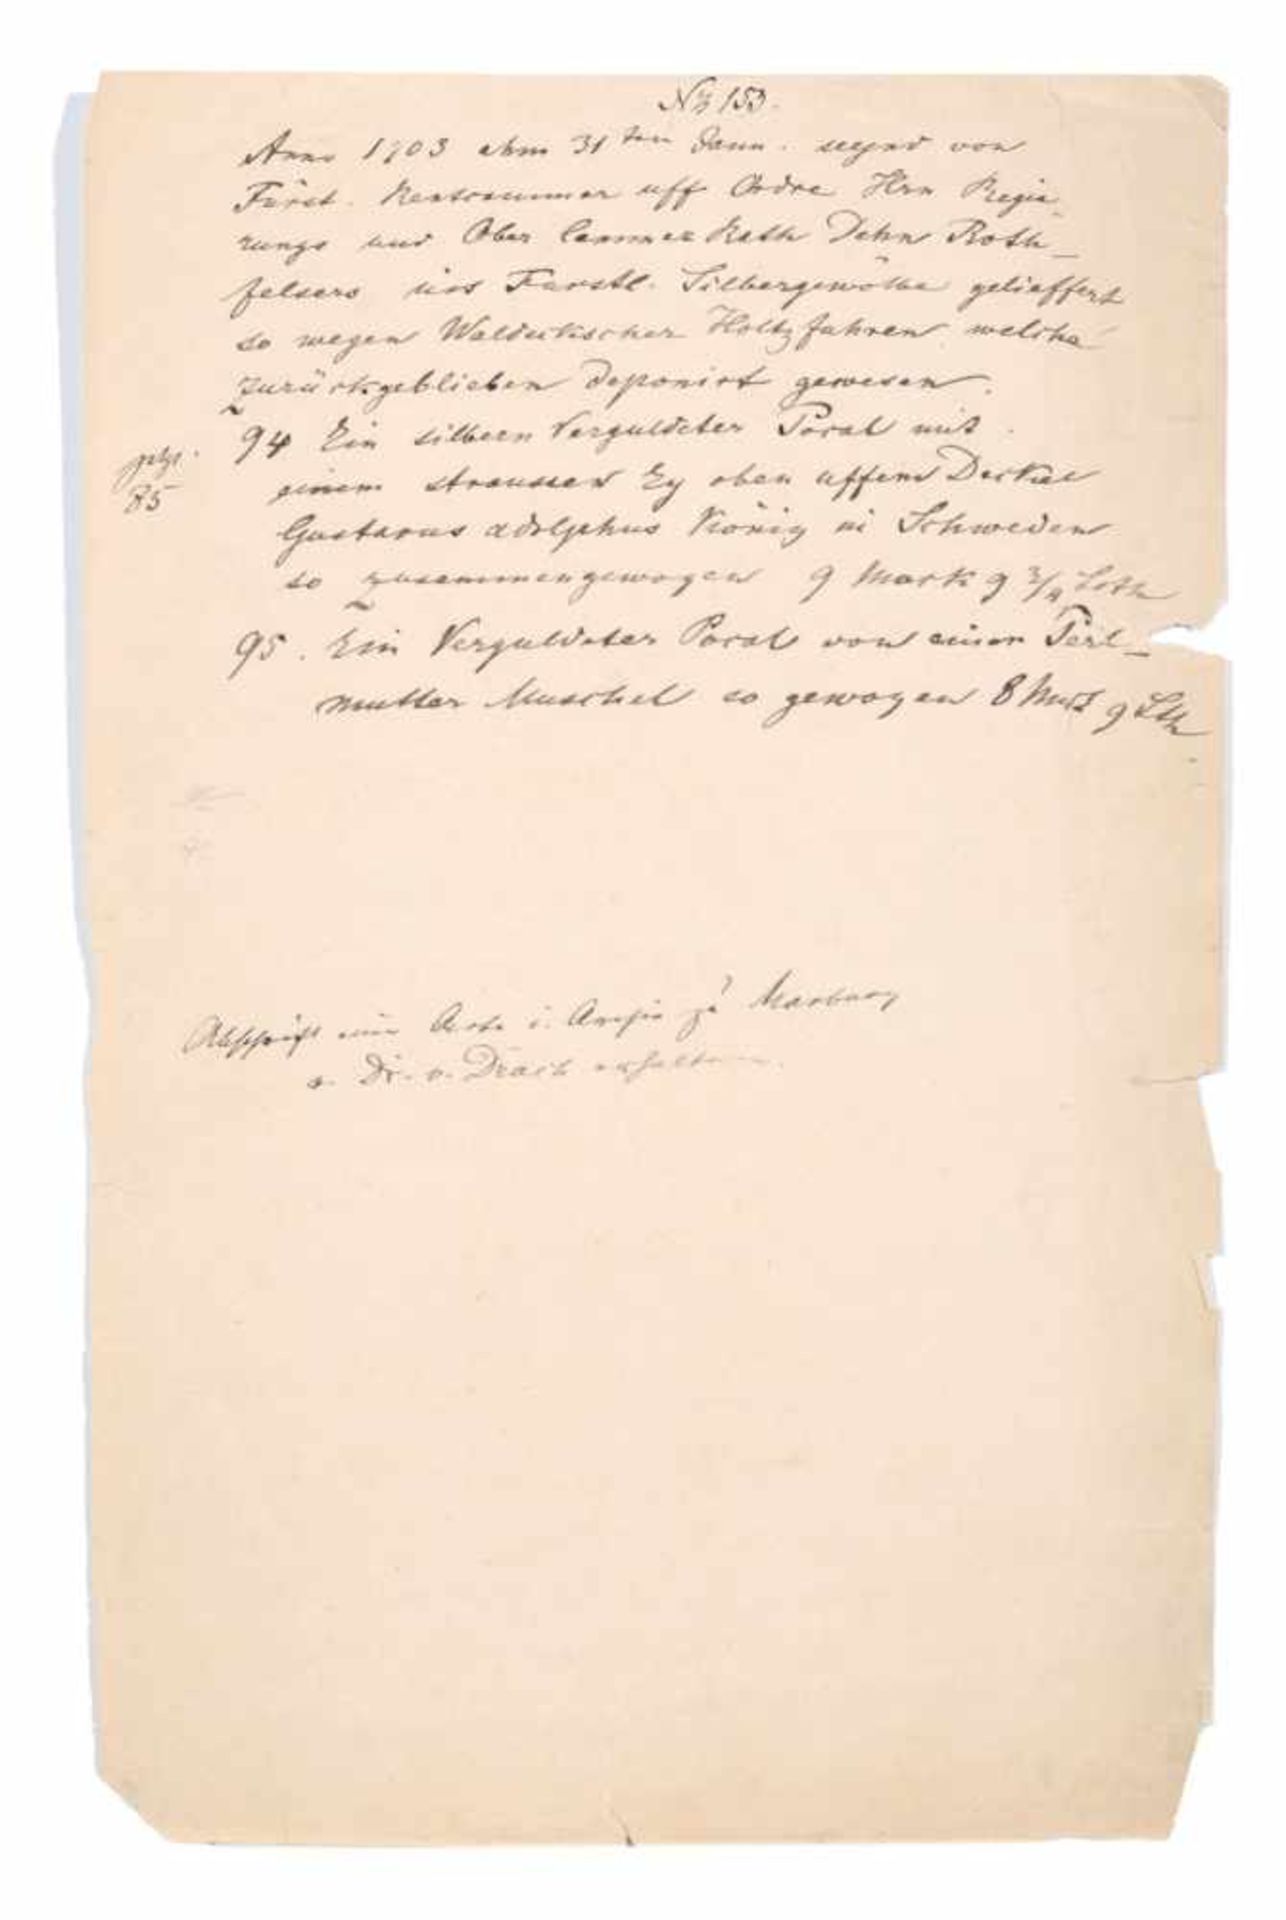 No 153.
Anno 1703 ahm 31ten Janu. seynd von
Fürst. Rentcammer uff Ordre Hrn Regie-
rungs und Ober Cammer Rath Dehn Roth-
felsers ins Furstl. Silbergewölbe gelieffert
so wegen Waldeckischer Holtzfuhren welche
zurückgeblieben deponirt gewesen.
94 Ein silbern Verguldeter Pocal mit
jetzt.
85
einem straussen Ey oben uffem Deckel
Gustavus adolphus König in Schweden
so zusammengewogen 9 Mark 9 3/4 Loth
95. Ein Verguldeter Pocal von einer Perl-
mutter Muschel so gewogen 8 Mrk 9 Lth
Abschrift einer Acte i. Archiv zu Marburg
v. Dr. v. Drach erhalten.